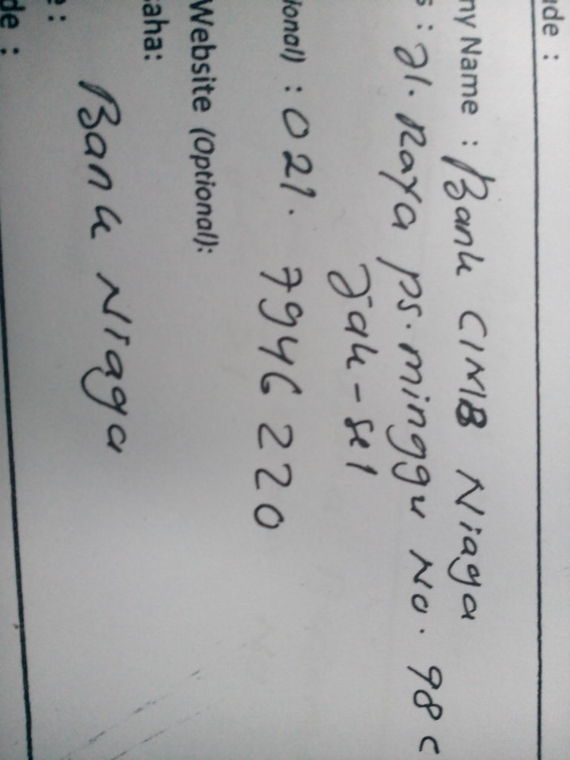 de :
ny Name : Bank CIMB Niaga
s : Jl. Raya ps. minggu No. 98 c
Jak-sel
ional) : 021. 7946 220
Website (Optional):
aha:
Bank Niaga
e :
de :